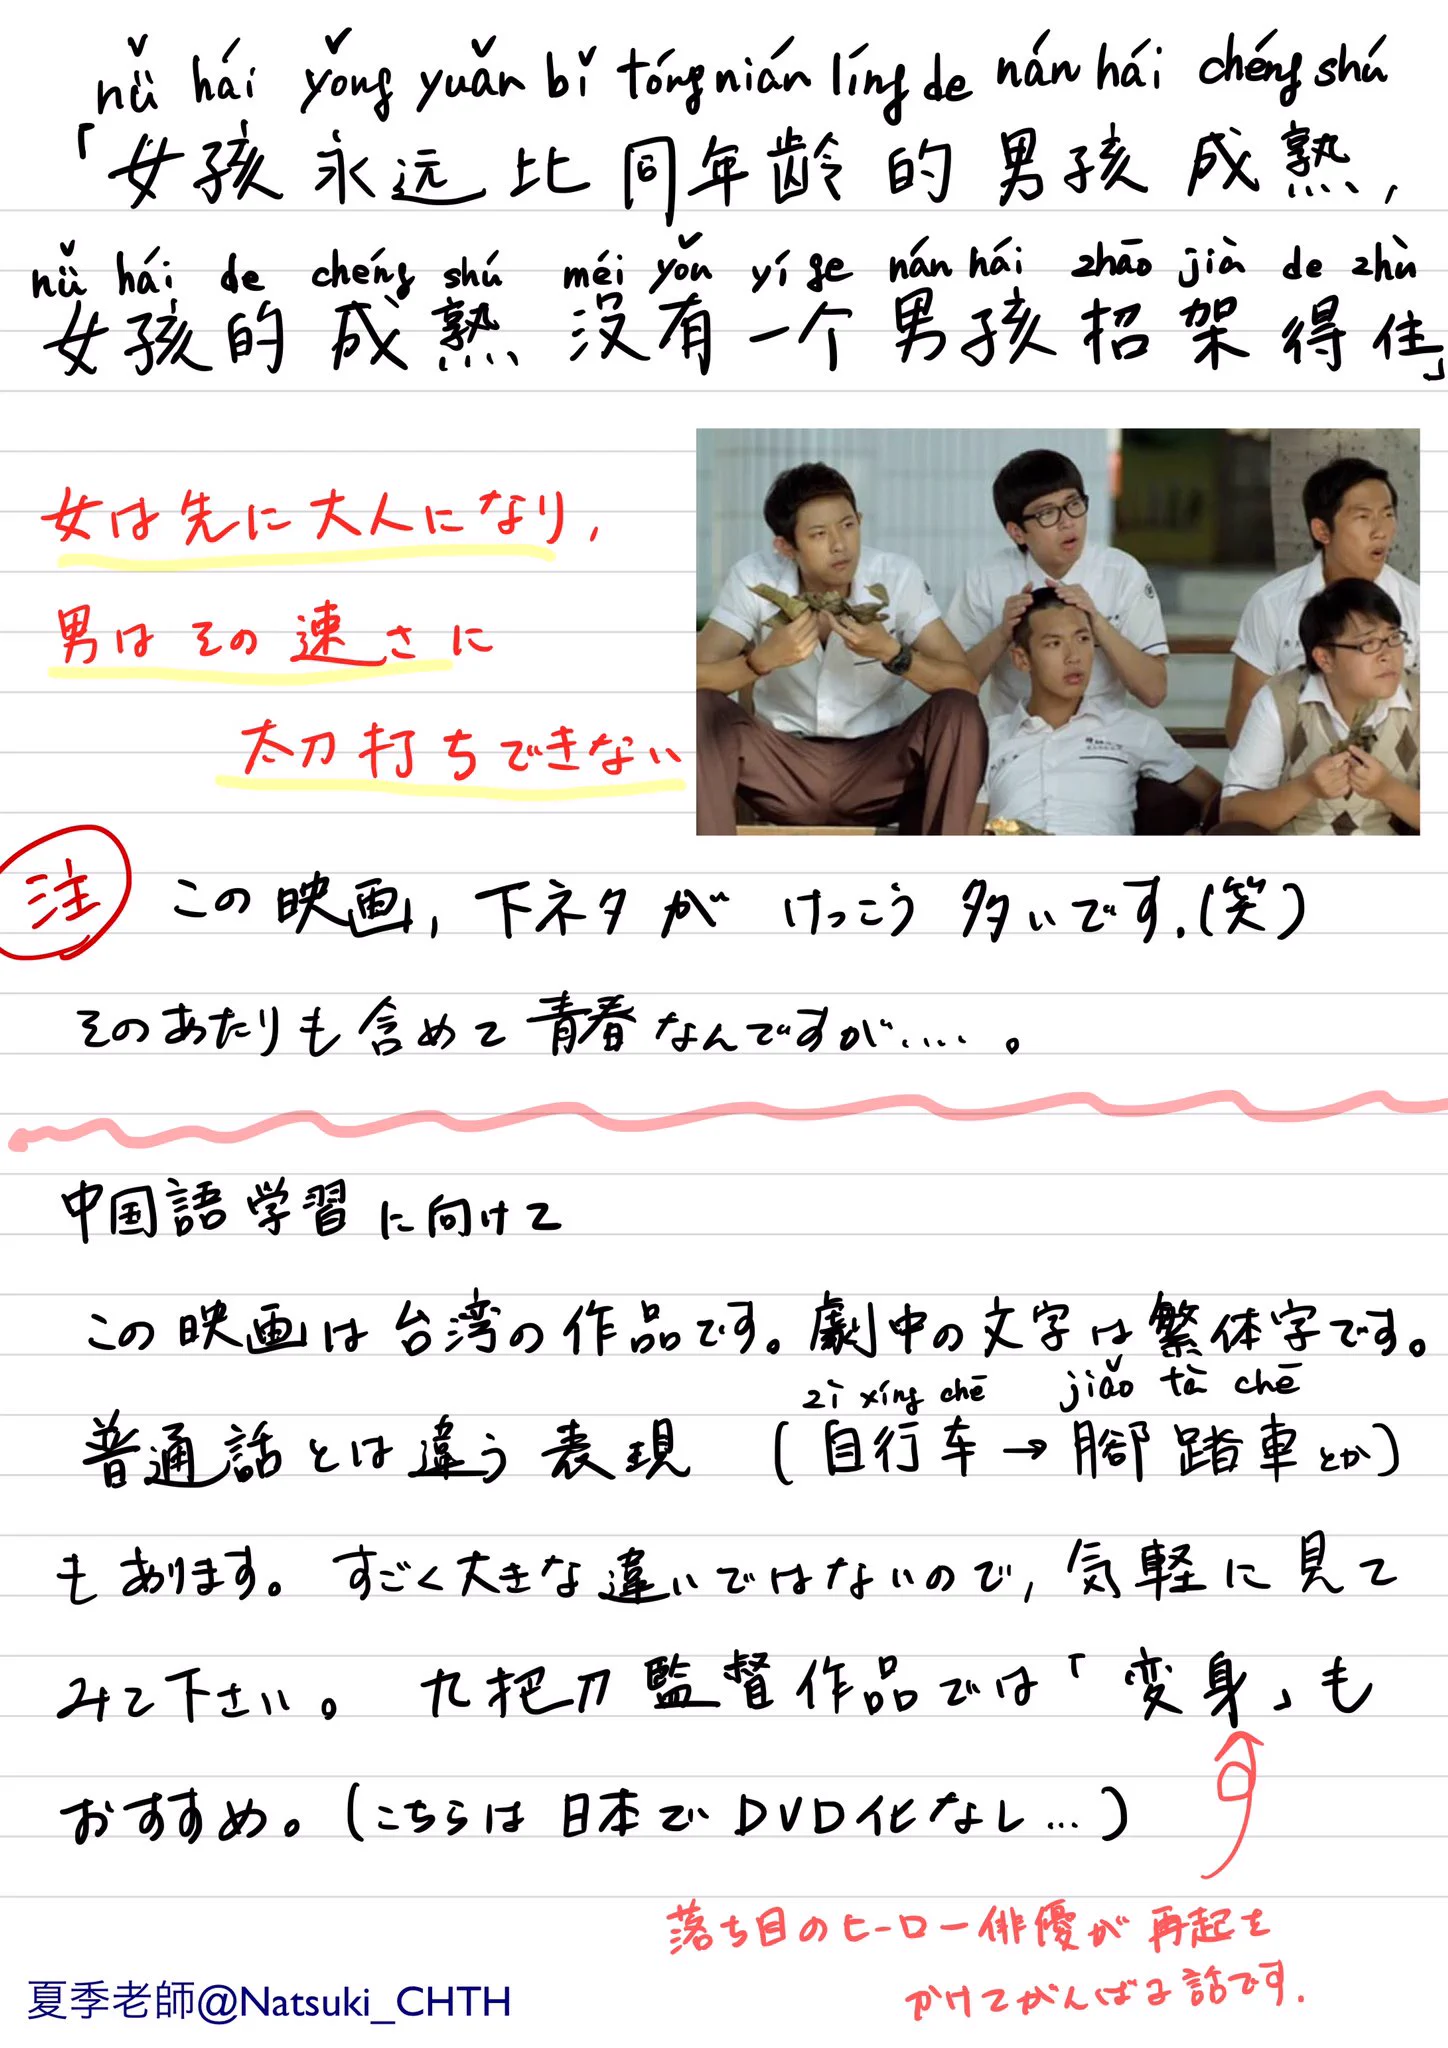 nǚ hái yǒng yuǎn bǐ tóng nián líng de nán hái chéng shú
「女孩永远比同年龄的男孩成熟,
nǚ hái de chéng shú méi yǒu yí ge nán hái zhāo jià de zhù
女孩的成熟没有一个男孩招架得住」
女は先に大人になり,
男はその速さに
太刀打ちできない
注 この映画,下ネタがけっこう多いです.(笑)
そのあたりも含めて青春なんですが….。
中国語学習に向けて
この映画は台湾の作品です。劇中の文字は繁体字です。
zì xíng chē jiǎo tà chē
普通話とは違う表現 (自行车→腳踏車とか)
もあります。すごく大きな違いではないので,気軽に見て
みて下さい。九把刀監督作品では「変身」も
おすすめ。(こちらは日本でDVD化なし…)
落ち目のヒーロー俳優が再起を
かけてがんばる話です.
夏季老師@Natsuki_CHTH